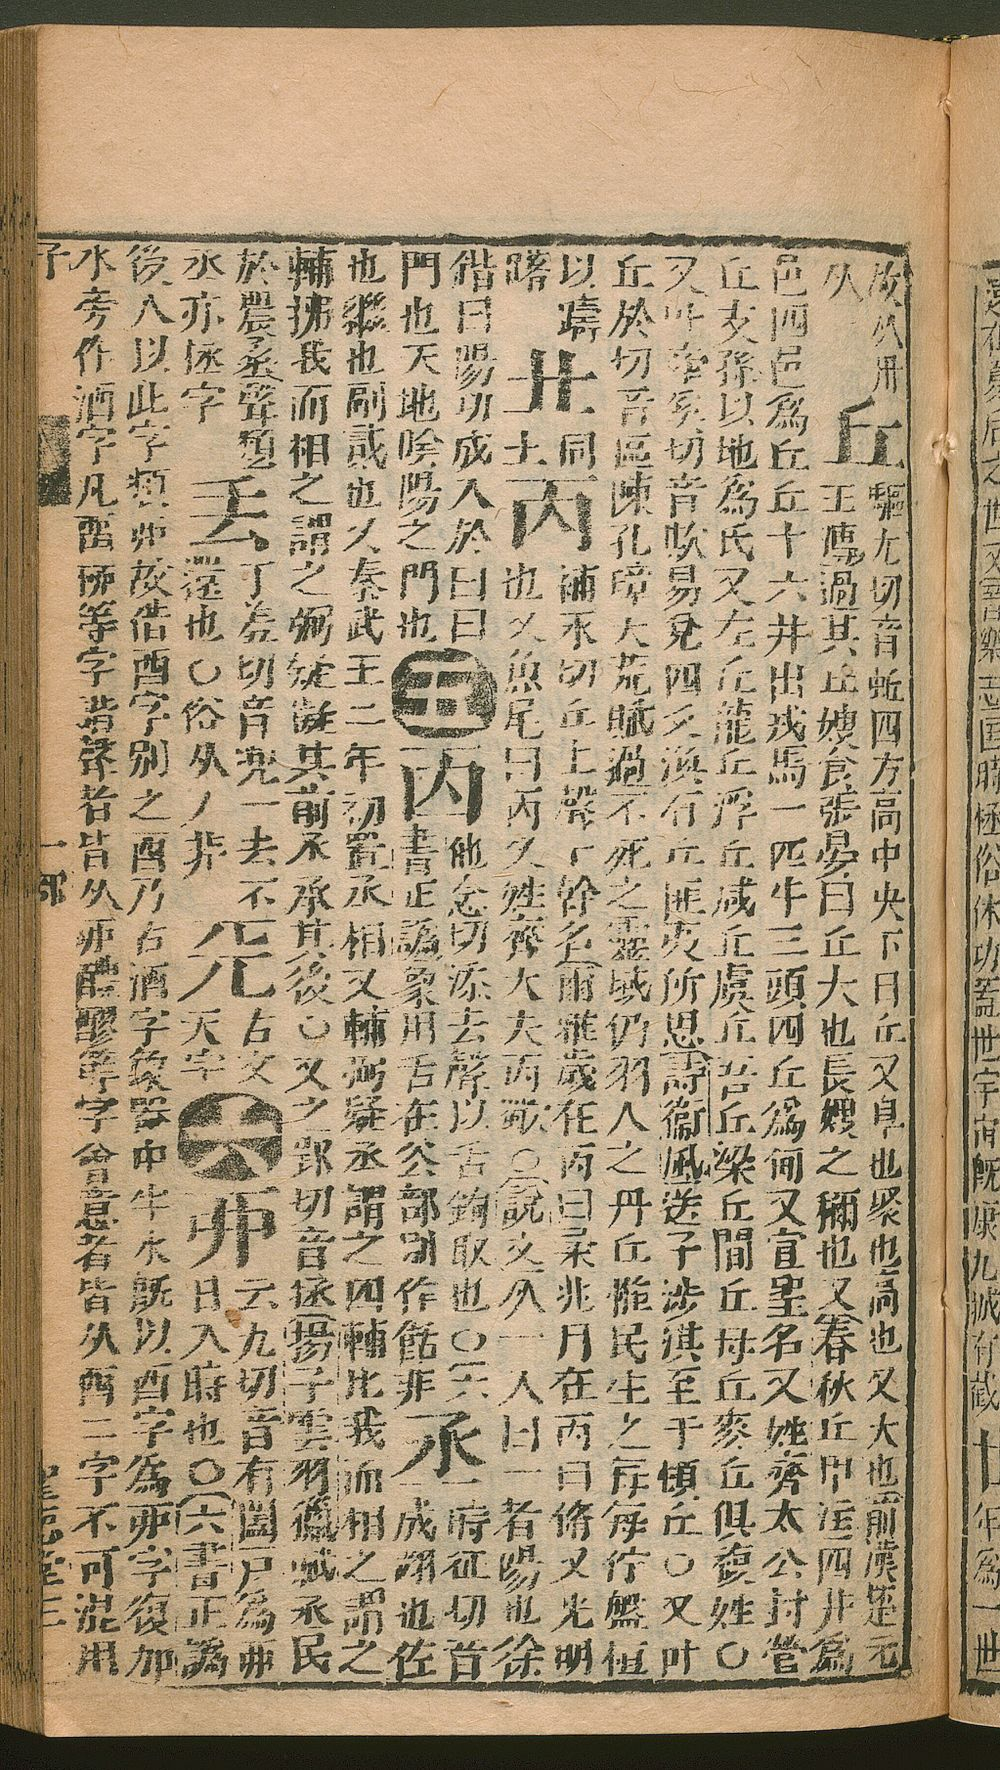 是在夏后之世又晉樂志匡時拯俗休功蓋世宇宙旣康九域有截 廿年爲一世
故从卅 丘 驅尤切音蚯四方高中央下曰丘又阜也聚也高也又大也前漢楚元
从 王傳過其丘嫂食張晏曰丘大也長嫂之稱也又春秋丘甲注四井爲
邑四邑爲丘丘十六井出戎馬一匹牛三頭四丘爲甸又宣聖名又姓齊太公封營
丘支孫以地爲氏又左丘龍丘浮丘咸丘虞丘吾丘梁丘閭丘母丘麥丘俱複姓○
又叶牽奚切音欺易兌四爻渙有丘匪夷所思詩衞風送子涉淇至于頓丘○又叶
丘於切音區陳孔璋大荒賦過不死之靈域仍羽人之丹丘惟民生之每每佇盤桓
以躊 丠 同 丙 補永切丘上聲十幹名爾雅歲在丙曰柔兆月在丙曰脩又光明
躇 上 也又魚尾曰丙又姓齊大夫丙歜○說文从一入冂一者陽也徐
鍇曰陽功成入於冂冂 五 㐁 他念切添去聲以舌鉤取也○六 丞 時征切音
門也天地陰陽之門也 書正譌象用舌在谷部別作餂非 一成翊也佐
也繼也副貳也又秦武王二年初置丞相又輔弼疑丞謂之四輔比我而相之謂之
輔拂我而相之謂之弼疑擬其前承承其後○又之郢切音拯揚子雲羽獵賦丞民
於農丞聲類 丟 丁羞切音兜一去不 兂 古文 六 丣 云九切音有闔戶爲丣
丞亦拯字 還也○俗从丿非 天字 日入時也○六書正譌
後人以此字類丣故借酉字別之酉乃古酒字象器中半水旣以酉字爲丣字復加
水旁作酒字凡畱桺等字諧聲者皆从丣醴醪等字會意者皆从酉二字不可混用
子 一部 三